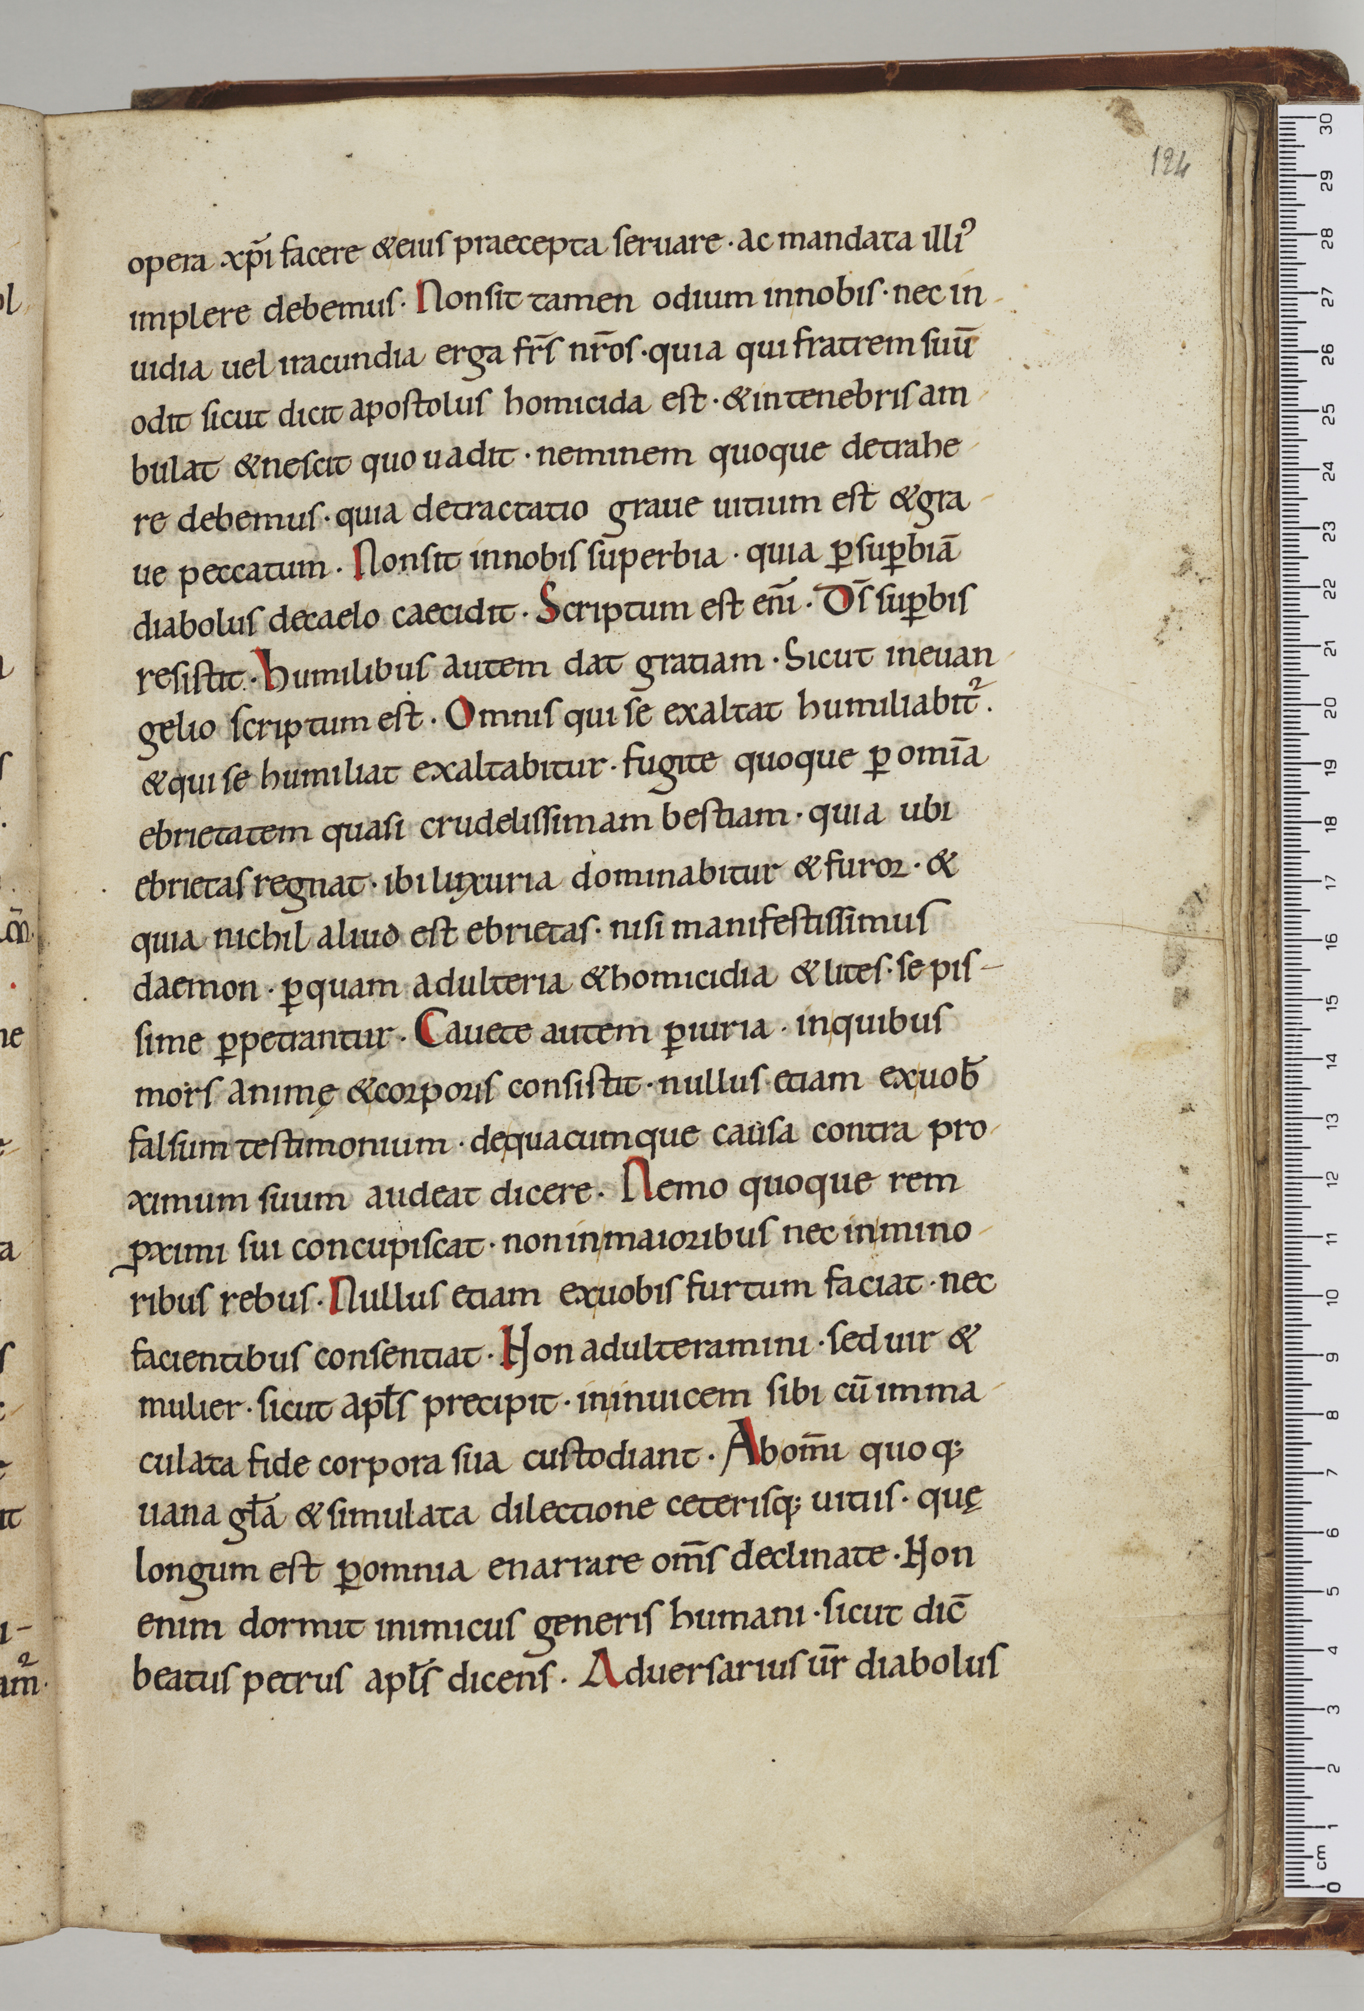 124
opera xp̄i facere & eius praecepta seruare · ac mandata illi᾿
implere debemus · Non sit tamen odium in nobis · nec in-
uidia uel iracundia erga fr̄s nr̄os · quia qui fratrem suū
odit sicut dicit apostolus homicida est · & in tenebris am
bulat & nescit quo uadit · neminem quoque detrahe-
re debemus · quia detractatio graue uitium est & gra-
ue peccatum · Non sit in nobis superbia · quia ꝑ suꝑbiā
diabolus de caelo caecidit · Scriptum est eni̅ · Ds̄ suꝑbis
resistit · humilibus autem dat gratiam · Sicut in euan-
gelio scriptum est · Omnis qui se exaltat humiliabit᷑ .
& qui se humiliat exaltabitur · fugite quoque ꝑ omīa
ebrietatem quasi crudelissimam bestiam · quia ubi
ebrietas regnat · ibi luxuria dominabitur & furor · &
quia nichil aliud est ebrietas · nisi manifestissimus
daemon · ꝑ quam adulteria & homicidia & lites · sepis-
sime ꝑpetrantur · Cauete autem ꝑiuria · in quibus
mors animę & corporis consistit · nullus etiam ex uob̄
falsum testimonium · de quacumque causa contra pro-
ximum suum audeat dicere · Nemo quoque rem
ꝓximi sui concupiscat · non in maioribus nec in mino-
ribus rebus · Nullus etiam ex uobis furtum faciat · nec
facientibus consentiat · Non adulteramini · sed uir &
mulier · sicut apl̄s precipit · in inuicem sibi cū imma-
culata fide corpora sua custodiant · Ab om̄i quoq;
uana gl̄a & simulata dilectione ceterisq; uitiis · quę
longum est ꝑ omnia enarrare om̄s declinate · Non
enim dormit inimicus generis humani · sicut dic̄
beatus petrus apl̄s dicens · Aduersarius ur̄ diabolus